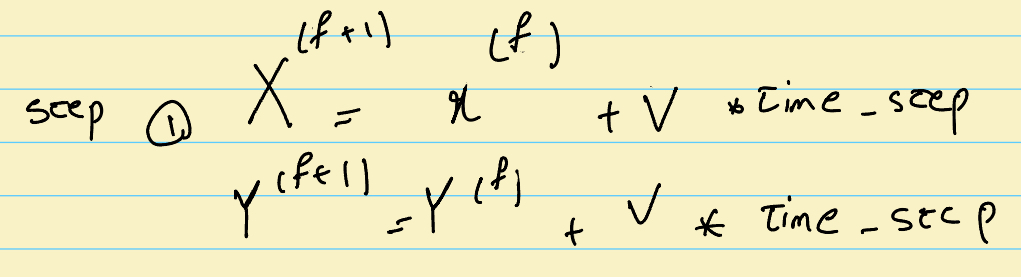 step ① X^(f+1) = x^(f) + V * time_step
Y^(f+1) = Y^(f) + V * Time_step